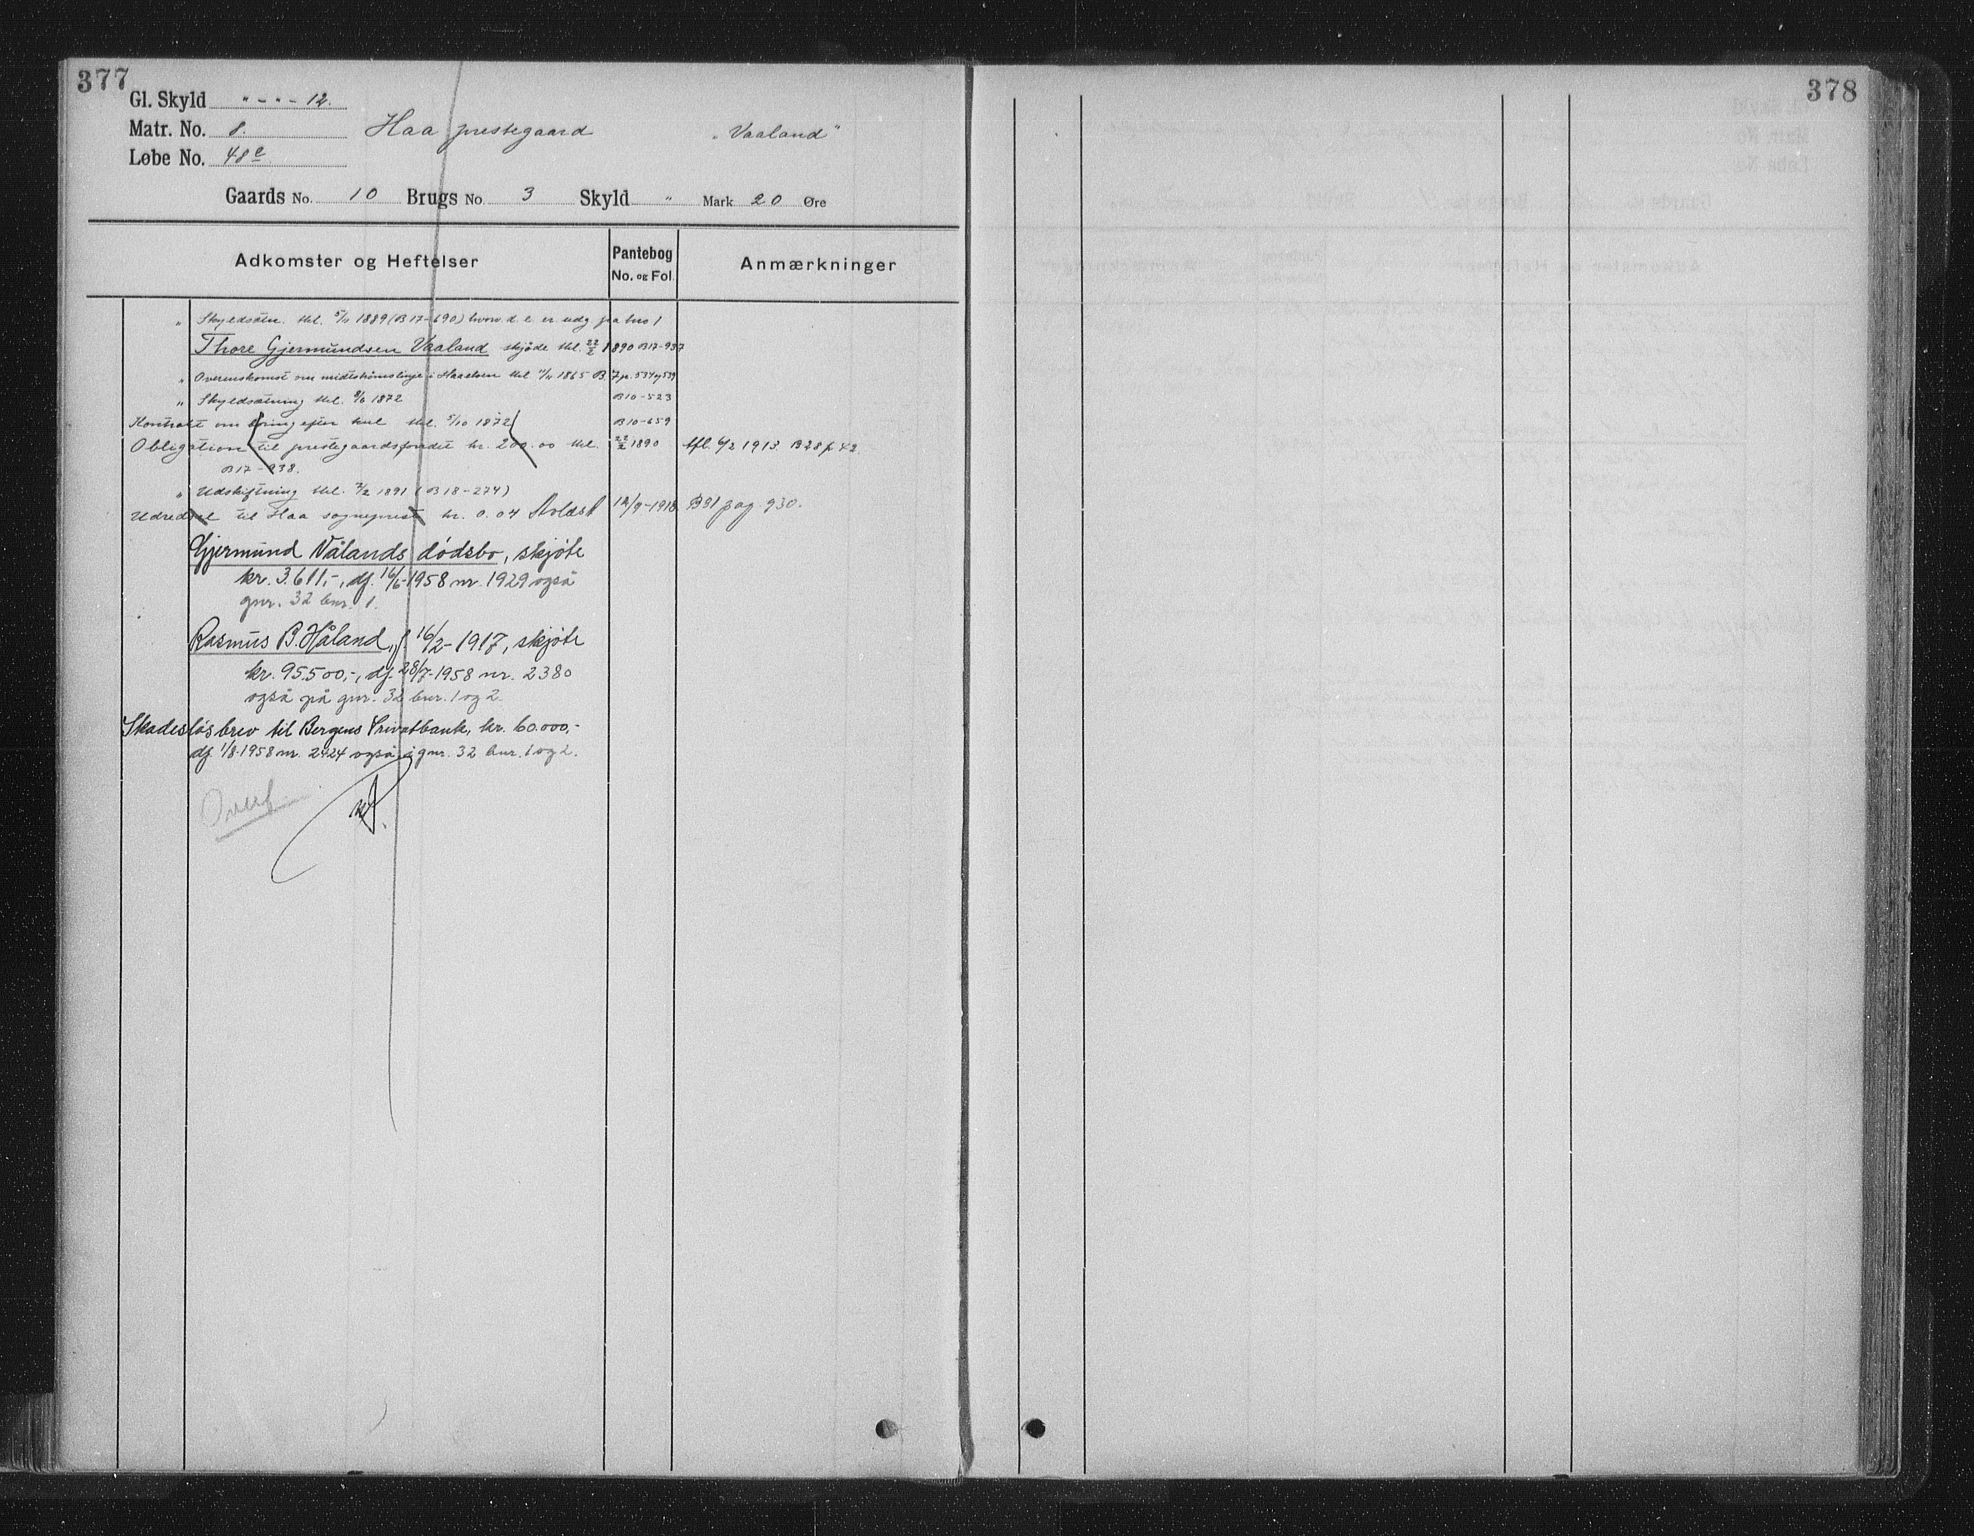 377
Gl. Skyld " - " - 12.
Matr. No. 8. Haa prestegaard "Vaaland"
Løbe No. 48e
Gaards No. 10 Brugs No 3 Skyld " Mark 20 Øre
Adkomster og Heftelser Pantebog No. og Fol. Anmærkninger
" Skyldsætn. thl. 5/11 1889 (B17-690) hvorv. d. e. er udg fra bno 1
Thore Gjermundsen Vaaland skjøde thl. 22/2 1890 B17-937
" Overenskomst om midtstrømslinje i Haaelven thl. 1865 B.7 p. 534 og 539
" Skyldsætning thl. 8/6 1872 B10-523
Kontrakt om boring efter kul thl. 5/10 1872 B10-659
Obligation til prestegaardsfondet kr. 200.00 thl. 22/2 1890 Afl. 6/2 1913 B28 p 42
B17-938.
" Udskiftning thl. 3/2 1891 (B18-274)
Udredsel til Haa sogneprest kr. 0.04 12/9-1918 B31 pag 930.
Gjermund Vålands dødsbo, skjøte
kr. 3.611,-, df. 16/6-1958 nr. 1929 også
gnr. 32 bnr. 1.
Rasmus B. Håland, f 16/2-1917, skjøte
kr. 95.500,-, df. 28/7-1958 nr. 2380
også på gnr. 32 bnr. 1 og 2
Skadesløsbrev til Bergens Privatbank, kr. 60.000,-
df 1/8-1958 nr. 2424 også i gnr. 32 bnr. 1 og 2.
Overf.
378